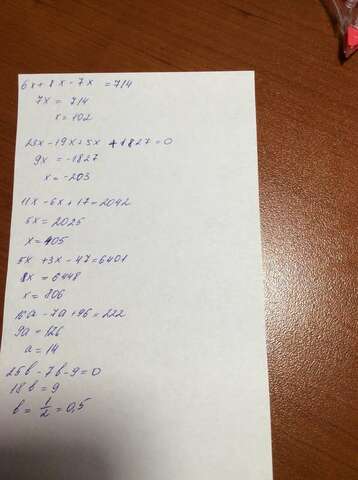 6x + 8x - 7x = 714
7x = 714
x = 102
23x - 19x + 5x + 1827 = 0
9x = -1827
x = -203
11x - 6x + 17 = 2042
5x = 2025
x = 405
5x + 3x - 47 = 6401
8x = 6448
x = 806
16a - 7a + 96 = 222
9a = 126
a = 14
25b - 7b - 9 = 0
18b = 9
b = 1/2 = 0,5